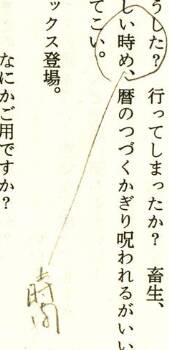 うした？　行ってしまったか？　畜生、
しい時め、暦のつづくかぎり呪われるがいい
てこい。
ックス登場。
なにかご用ですか？
時間